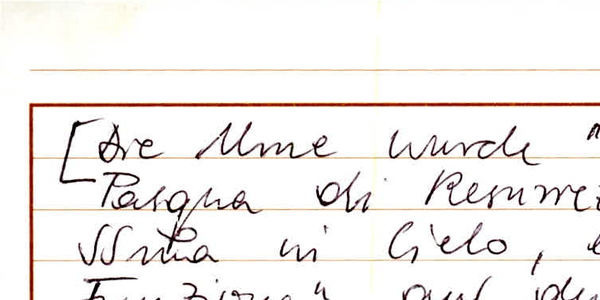 [Die Urne wurde "
Pasqua di Resurrez
SSma in Cielo,
Funziona" auf